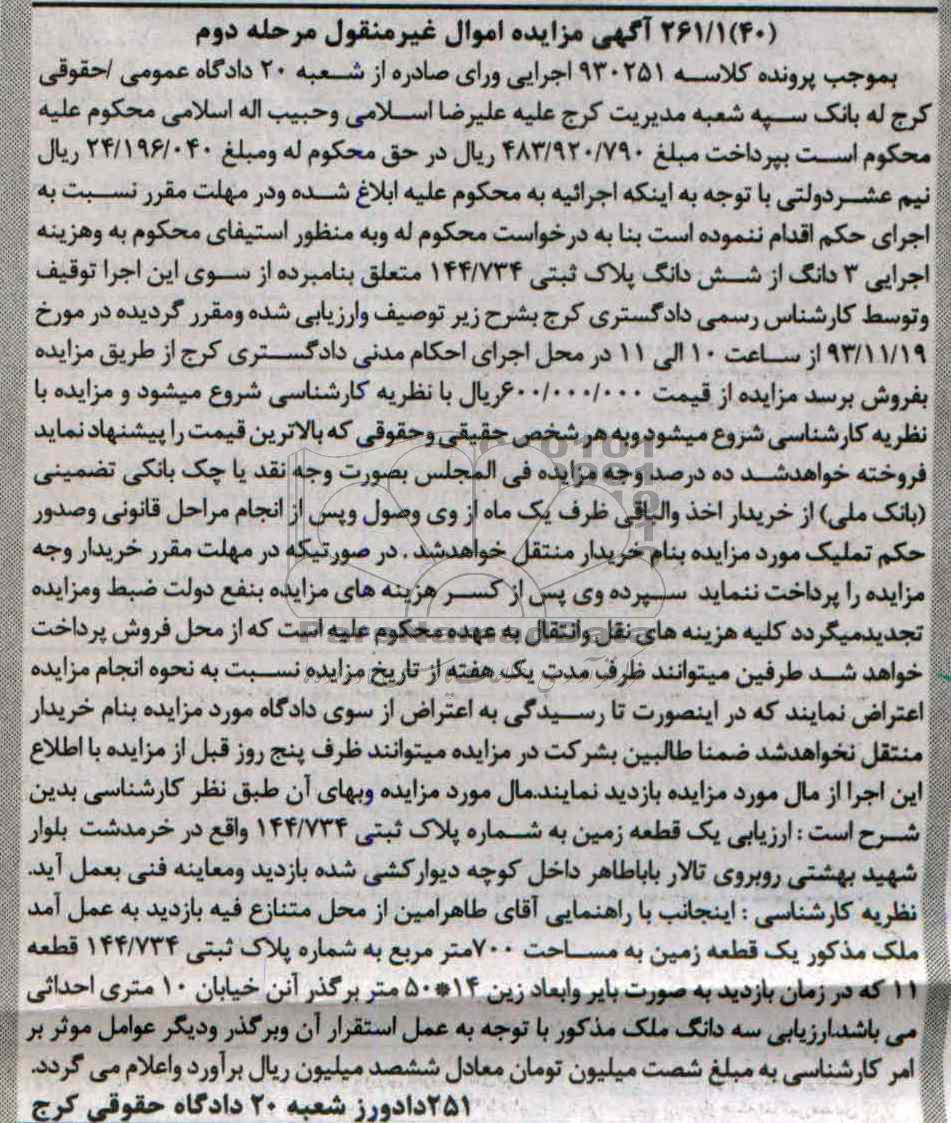 ۲۶۱/۱(۴۰) آگهی مزایده اموال غیرمنقول مرحله دوم
بموجب پرونده کلاسه ۹۳۰۲۵۱ اجرایی ورای صادره از شعبه ۲۰ دادگاه عمومی /حقوقی
کرج له بانک سپه شعبه مدیریت کرج علیه علیرضا اسلامی وحبیب اله اسلامی محکوم علیه
محکوم است بپرداخت مبلغ ۴۸۳/۹۲۰/۷۹۰ ریال در حق محکوم له ومبلغ ۲۴/۱۹۶/۰۴۰ ریال
نیم عشردولتی با توجه به اینکه اجرائیه به محکوم علیه ابلاغ شده ودر مهلت مقرر نسبت به
اجرای حکم اقدام ننموده است بنا به درخواست محکوم له وبه منظور استیفای محکوم به وهزینه
اجرایی ۳ دانگ از شش دانگ پلاک ثبتی ۱۴۴/۷۳۴ متعلق بنامبرده از سوی این اجرا توقیف
وتوسط کارشناس رسمی دادگستری کرج بشرح زیر توصیف وارزیابی شده ومقرر گردیده در مورخ
۹۳/۱۱/۱۹ از ساعت ۱۰ الی ۱۱ در محل اجرای احکام مدنی دادگستری کرج از طریق مزایده
بفروش برسد مزایده از قیمت ۶۰۰/۰۰۰/۰۰۰ریال با نظریه کارشناسی شروع میشود و مزایده با
نظریه کارشناسی شروع میشودوبه هر شخص حقیقی وحقوقی که بالاترین قیمت را پیشنهاد نماید
فروخته خواهدشد ده درصد وجه مزایده فی المجلس بصورت وجه نقد یا چک بانکی تضمینی
(بانک ملی) از خریدار اخذ والباقی ظرف یک ماه از وی وصول وپس از انجام مراحل قانونی وصدور
حکم تملیک مورد مزایده بنام خریدار منتقل خواهدشد . در صورتیکه در مهلت مقرر خریدار وجه
مزایده را پرداخت ننماید سپرده وی پس از کسر هزینه های مزایده بنفع دولت ضبط ومزایده
تجدیدمیگردد کلیه هزینه های نقل وانتقال به عهده محکوم علیه است که از محل فروش پرداخت
خواهد شد طرفین میتوانند ظرف مدت یک هفته از تاریخ مزایده نسبت به نحوه انجام مزایده
اعتراض نمایند که در اینصورت تا رسیدگی به اعتراض از سوی دادگاه مورد مزایده بنام خریدار
منتقل نخواهدشد ضمنا طالبین بشرکت در مزایده میتوانند ظرف پنج روز قبل از مزایده با اطلاع
این اجرا از مال مورد مزایده بازدید نمایند.مال مورد مزایده وبهای آن طبق نظر کارشناسی بدین
شرح است : ارزیابی یک قطعه زمین به شماره پلاک ثبتی ۱۴۴/۷۳۴ واقع در خرمدشت بلوار
شهید بهشتی روبروی تالار باباطاهر داخل کوچه دیوارکشی شده بازدید ومعاینه فنی بعمل آید.
نظریه کارشناسی : اینجانب با راهنمایی آقای طاهرامین از محل متنازع فیه بازدید به عمل آمد
ملک مذکور یک قطعه زمین به مساحت ۷۰۰متر مربع به شماره پلاک ثبتی ۱۴۴/۷۳۴ قطعه
۱۱ که در زمان بازدید به صورت بایر وابعاد زین ۱۴*۵۰ متر برگذر آنن خیابان ۱۰ متری احداثی
می باشد.ارزیابی سه دانگ ملک مذکور با توجه به عمل استقرار آن وبرگذر ودیگر عوامل موثر بر
امر کارشناسی به مبلغ شصت میلیون تومان معادل ششصد میلیون ریال برآورد واعلام می گردد.
۲۵۱دادورز شعبه ۲۰ دادگاه حقوقی کرج